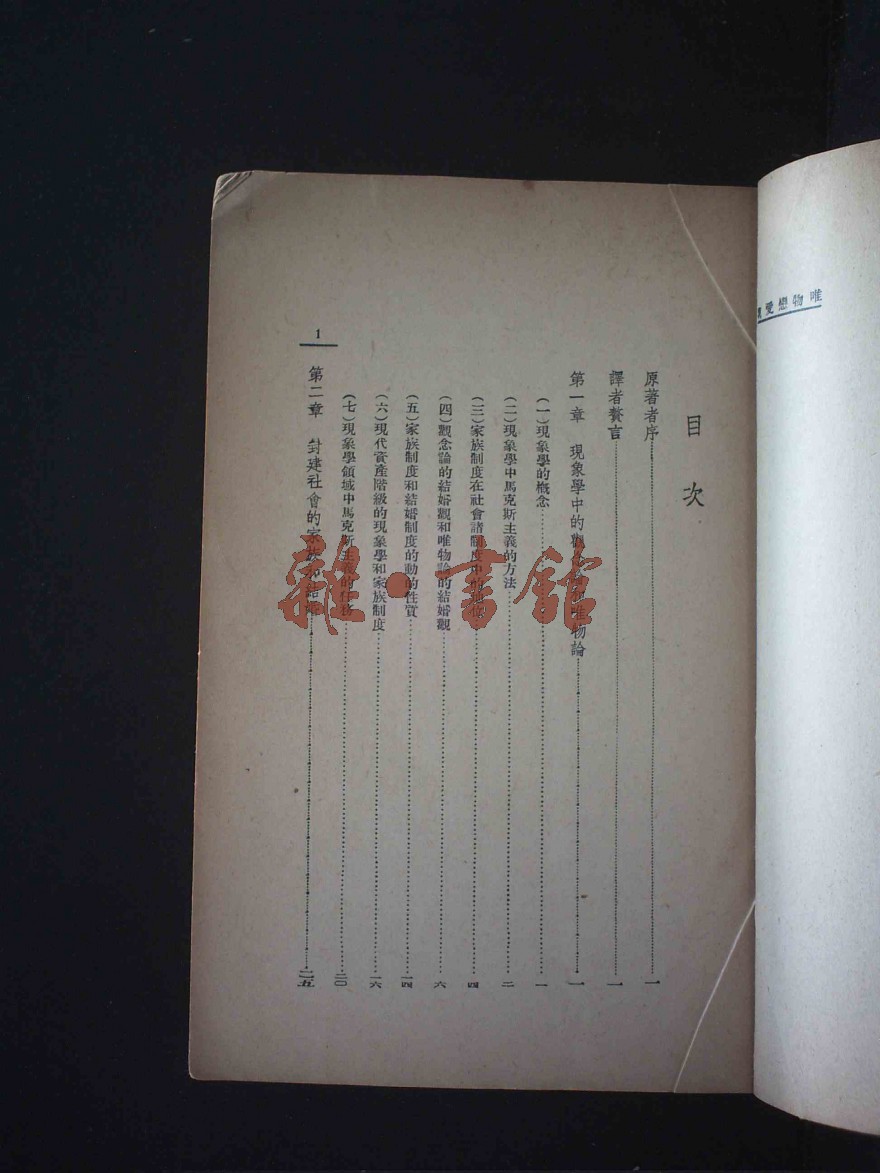 唯物戀愛
目次
原著者序…一
譯者贅言…一
第一章 現象學中的觀念論和唯物論…一
(一)現象學的概念…一
(二)現象學中馬克斯主義的方法…二
(三)家族制度在社會諸制度中的…四
(四)觀念論的結婚觀和唯物論的結婚觀…六
(五)家族制度和結婚制度的動的性質…一四
(六)現代資產階級的現象學和家族制度…一六
(七)現象學領域中馬克斯主義的任務…二〇
第二章 封建社會的家族和結婚…二五
1
雜·書館